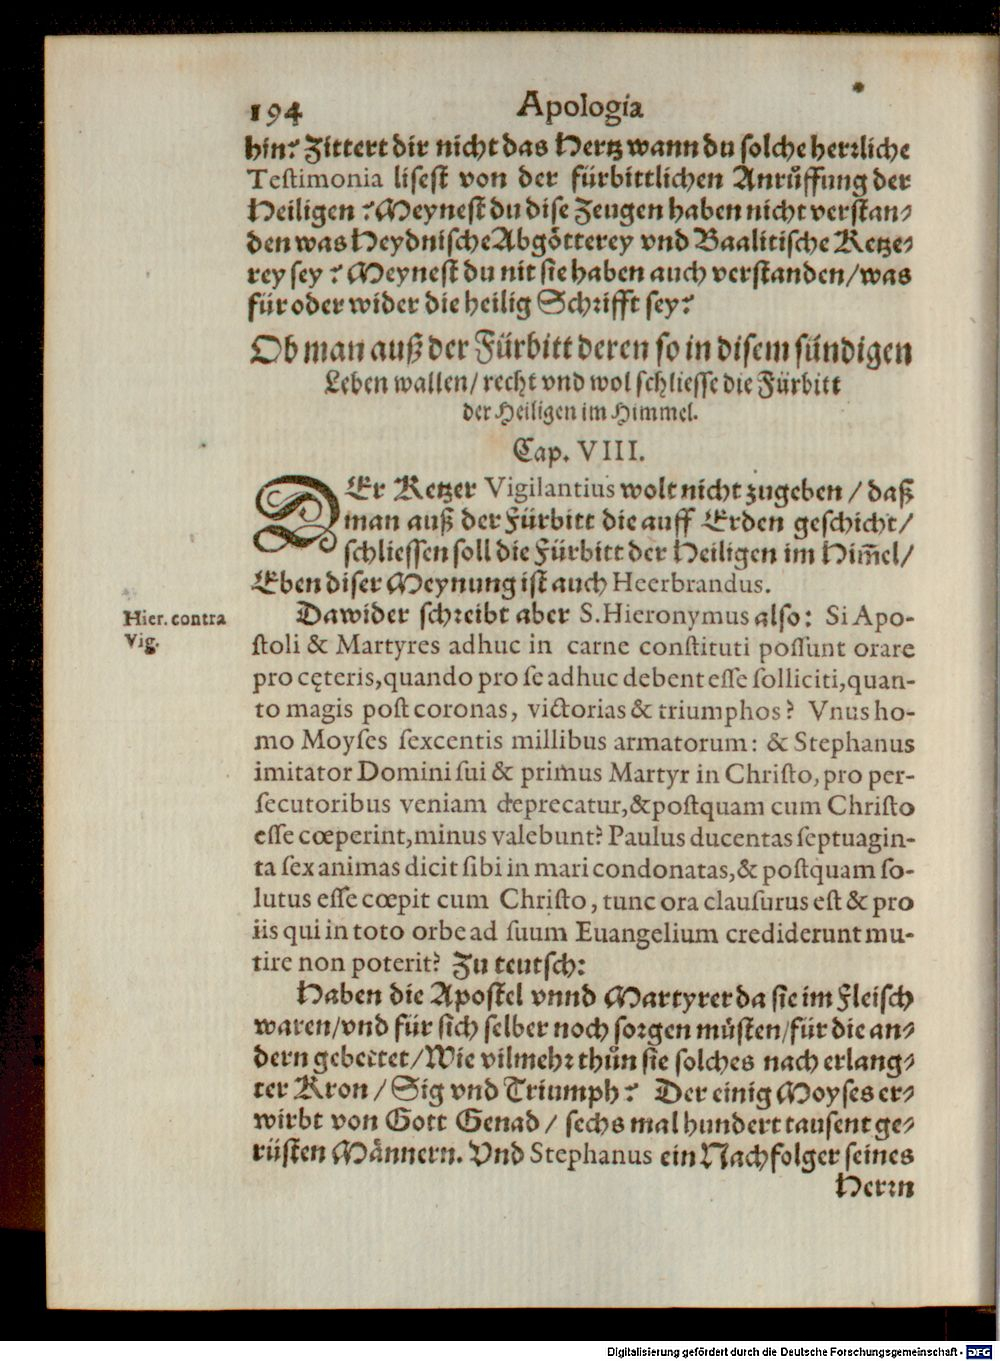 194 Apologia
hin? Zittert dir nicht das Hertz wann du solche herrliche
Testimonia lisest von der fürbittlichen Anrůffung der
Heiligen? Meynest du dise Zeugen haben nicht verstan-
den was Heydnische Abgötterey vnd Baalitische Ketze-
rey sey? Meynest du nit sie haben auch verstanden/was
für oder wider die heilig Schrifft sey?
Ob man auß der Fürbitt deren so in disem sündigen
Leben wallen/ recht vnd wol schliesse die Fürbitt
der Heiligen im Himmel.
Cap. VIII.
DEr Ketzer Vigilantius wolt nicht zugeben / daß
man auß der Fürbitt die auff Erden geschicht/
schliessen soll die Fürbitt der Heiligen im Him̃el/
Eben diser Meynung ist auch Heerbrandus.
Hier. contra
Vig.
Dawider schreibt aber S. Hieronymus also: Si Apo-
stoli & Martyres adhuc in carne constituti possunt orare
pro cęteris, quando pro se adhuc debent esse solliciti, quan-
to magis post coronas, victorias & triumphos? Vnus ho-
mo Moyses sexcentis millibus armatorum: & Stephanus
imitator Domini sui & primus Martyr in Christo, pro per-
secutoribus veniam deprecatur, & postquam cum Christo
esse cœperint, minus valebunt? Paulus ducentas septuagin-
ta sex animas dicit sibi in mari condonatas, & postquam so-
lutus esse cœpit cum Christo, tunc ora clausurus est & pro
iis qui in toto orbe ad suum Euangelium crediderunt mu-
tire non poterit? Zu teutsch:
Haben die Apostel vnnd Martyrer da sie im Fleisch
waren/vnd für sich selber noch sorgen müsten/für die an-
dern gebettet/Wie vilmehr thůn sie solches nach erlang-
ter Kron / Sig vnd Triumph? Der einig Moyses er-
wirbt von Gott Genad / sechs mal hundert tausent ge-
rüsten Männern. Vnd Stephanus ein Nachfolger seines
Herrn
Digitalisierung gefördert durch die Deutsche Forschungsgemeinschaft - DFG